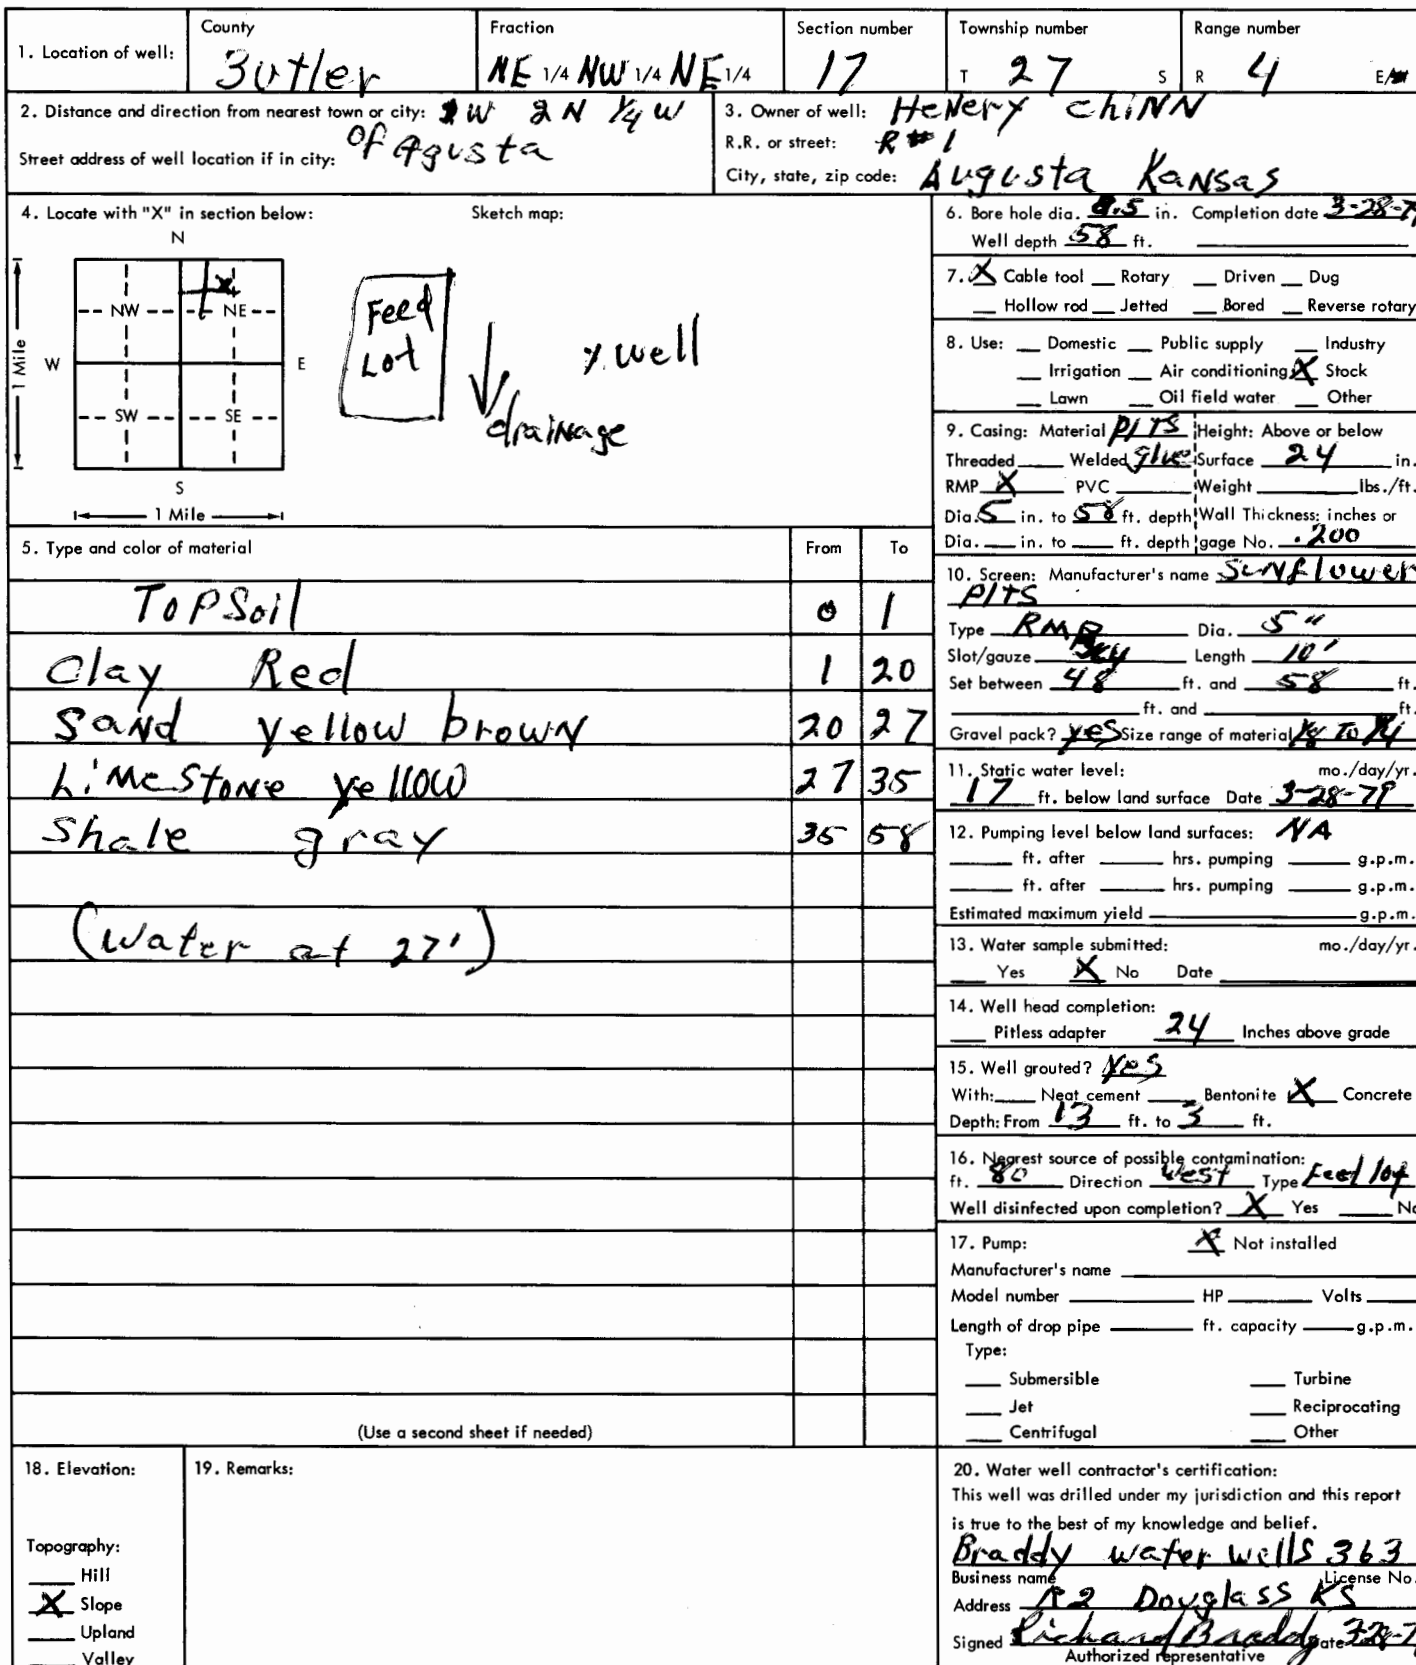 1. Location of well:
County
Butler
Fraction
NE 1/4 NW 1/4 NE 1/4
Section number
17
Township number
T 27 S
Range number
R 4 E/
2. Distance and direction from nearest town or city: 2W 2N 1/4 W
of Agusta
Street address of well location if in city:
3. Owner of well: Henery ChiNN
R.R. or street: R#1
City, state, zip code: Augusta Kansas
4. Locate with "X" in section below:
Sketch map:
N
NW NE
W E
SW SE
S
1 Mile
1 Mile
X
Feed
Lot
drainage
x well
5. Type and color of material From To
TopSoil 0 1
Clay Red 1 20
Sand yellow brown 20 27
Limestone yellow 27 35
Shale gray 35 58
(Water at 27')
(Use a second sheet if needed)
6. Bore hole dia. in. Completion date 3-28-79
Well depth 58 ft.
7. X Cable tool Rotary Driven Dug
Hollow rod Jetted Bored Reverse rotary
8. Use: Domestic Public supply Industry
Irrigation Air conditioning X Stock
Lawn Oil field water Other
9. Casing: Material PITS Height: Above or below
Threaded Welded Glue Surface 24 in.
RMP X PVC Weight lbs./ft.
Dia. 5 in. to 58 ft. depth Wall Thickness: inches or
Dia. in. to ft. depth gage No. .200
10. Screen: Manufacturer's name Sunflower
PITS
Type RMP Dia. 5"
Slot/gauze Length 10'
Set between 48 ft. and 58 ft.
ft. and ft.
Gravel pack? Yes Size range of material 1/8 To 1/4
11. Static water level: mo./day/yr.
17 ft. below land surface Date 3-28-79
12. Pumping level below land surfaces: NA
ft. after hrs. pumping g.p.m.
ft. after hrs. pumping g.p.m.
Estimated maximum yield g.p.m.
13. Water sample submitted: mo./day/yr.
Yes X No Date
14. Well head completion:
Pitless adapter 24 Inches above grade
15. Well grouted? Yes
With: Neat cement Bentonite X Concrete
Depth: From 13 ft. to 3 ft.
16. Nearest source of possible contamination:
ft. 80 Direction West Type Feed lot
Well disinfected upon completion? X Yes No
17. Pump: X Not installed
Manufacturer's name
Model number HP Volts
Length of drop pipe ft. capacity g.p.m.
Type:
Submersible Turbine
Jet Reciprocating
Centrifugal Other
18. Elevation:
Topography:
Hill
X Slope
Upland
Valley
19. Remarks:
20. Water well contractor's certification:
This well was drilled under my jurisdiction and this report
is true to the best of my knowledge and belief.
Braddy water wells 363
Business name License No.
Address R2 Douglass KS
Signed Richard Braddy Date 3-28-7
Authorized representative